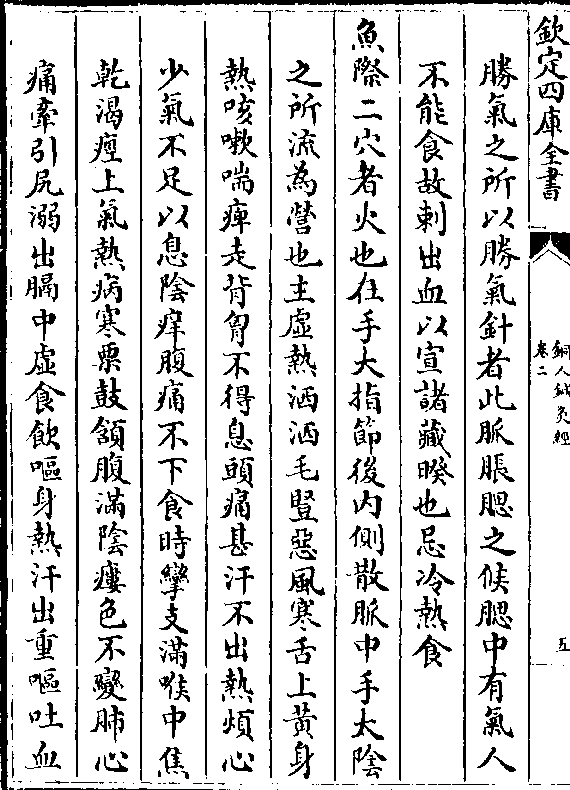 欽定四庫全書
銅人鍼灸經
卷二
五
勝氣之所以勝氣針者此脈脹腮之候腮中有氣人
不能食故刺出血以宣諸藏暌也忌冷熱食
魚際二穴者火也在手大指節後內側散脈中手太陰
之所流為營也主虛熱洒洒毛豎惡風寒舌上黃身
熱咳嗽喘痺走背胷不得息頭痛甚汗不出熱煩心
少氣不足以息陰痒腹痛不下食時攣支滿喉中焦
乾渴痙上氣熱病寒栗鼓頷腹滿陰痿色不變肺心
痛牽引尻溺出膈中虛食飲嘔身熱汗出重嘔吐血